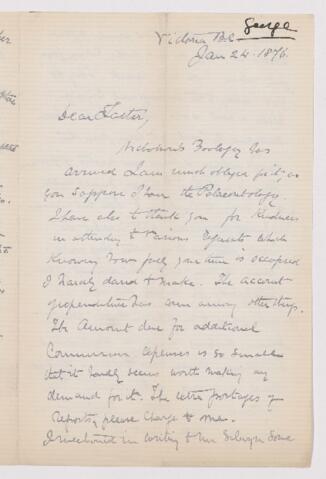 George
Victoria B.C.
Jan 24. 1876.
Dear Father,
Nicholson's Zoology has
arrived I am much obliged for it; as
you suppose I have the Palaeontology.
I have also to thank you for kindness
in attending to various requests which
knowing how fully your time is occupied
I hardly dared to make. The account
of expenditure has come among other things.
The Amount due for additional
Commission expenses is so small
that it hardly seems worth making any
demand for it. The extra postages of
Reports, please charge to me.
I mentioned in writing to Mr Selwyn some